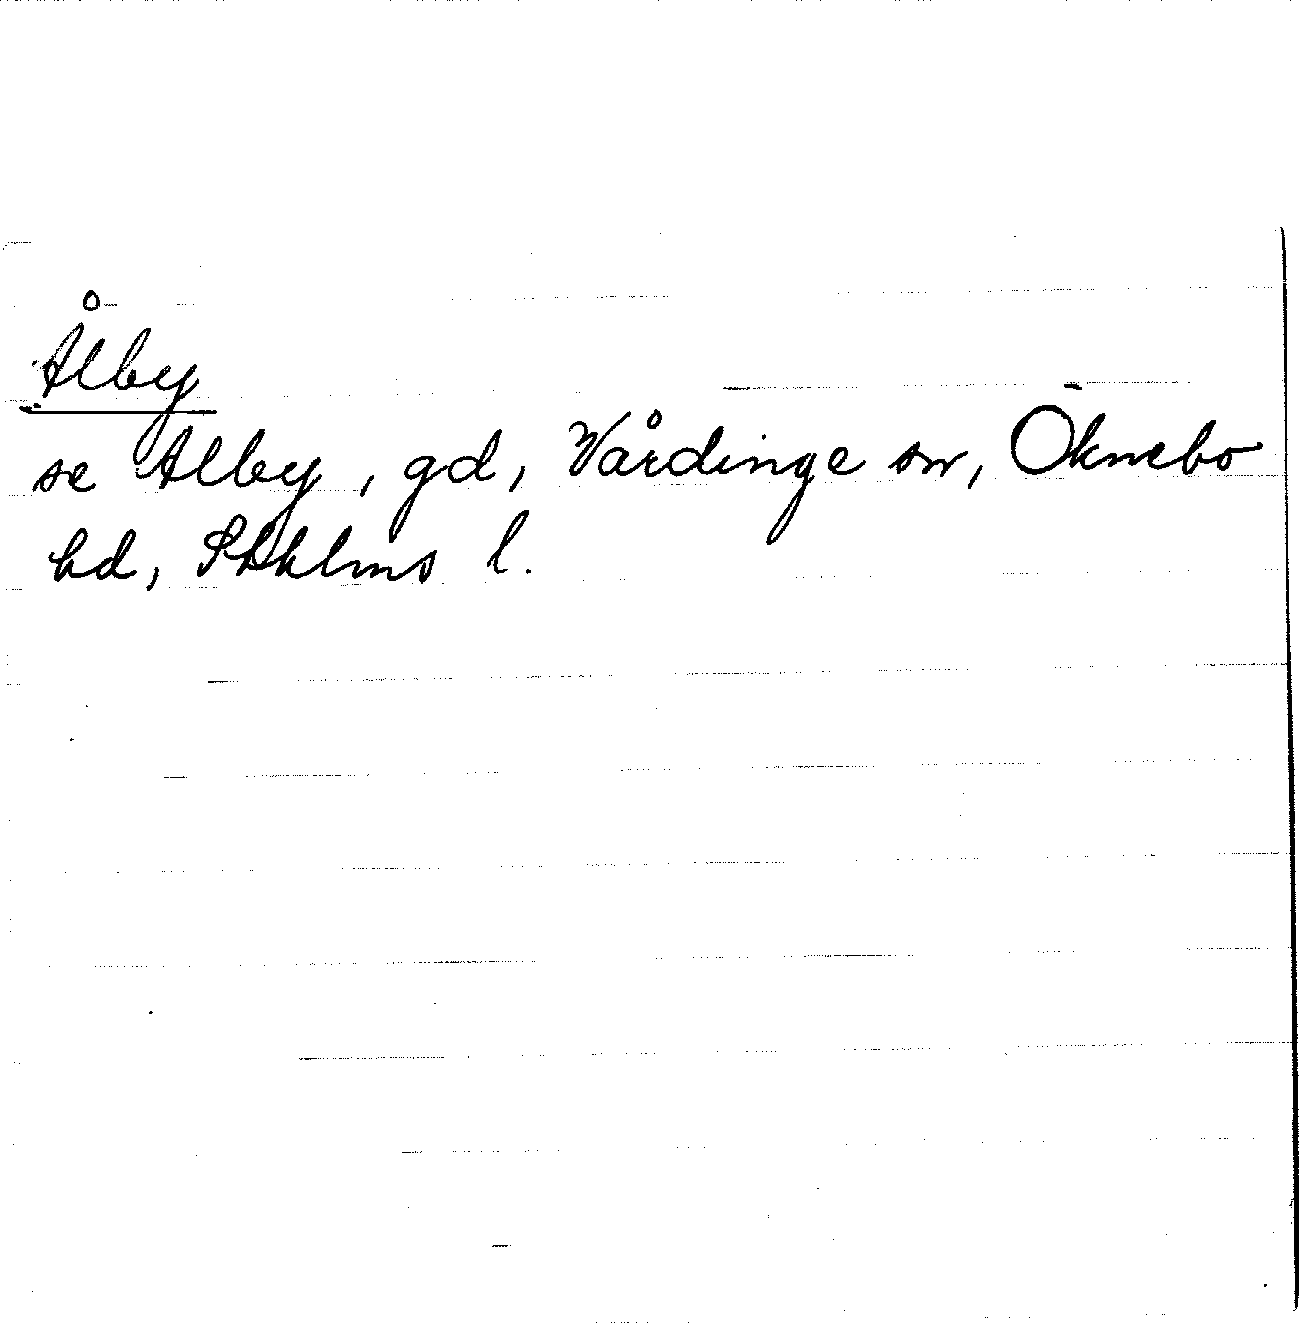 Ålby
se Alby, gd, Vårdinge sn, Öknebo
hd, Sthlms l.